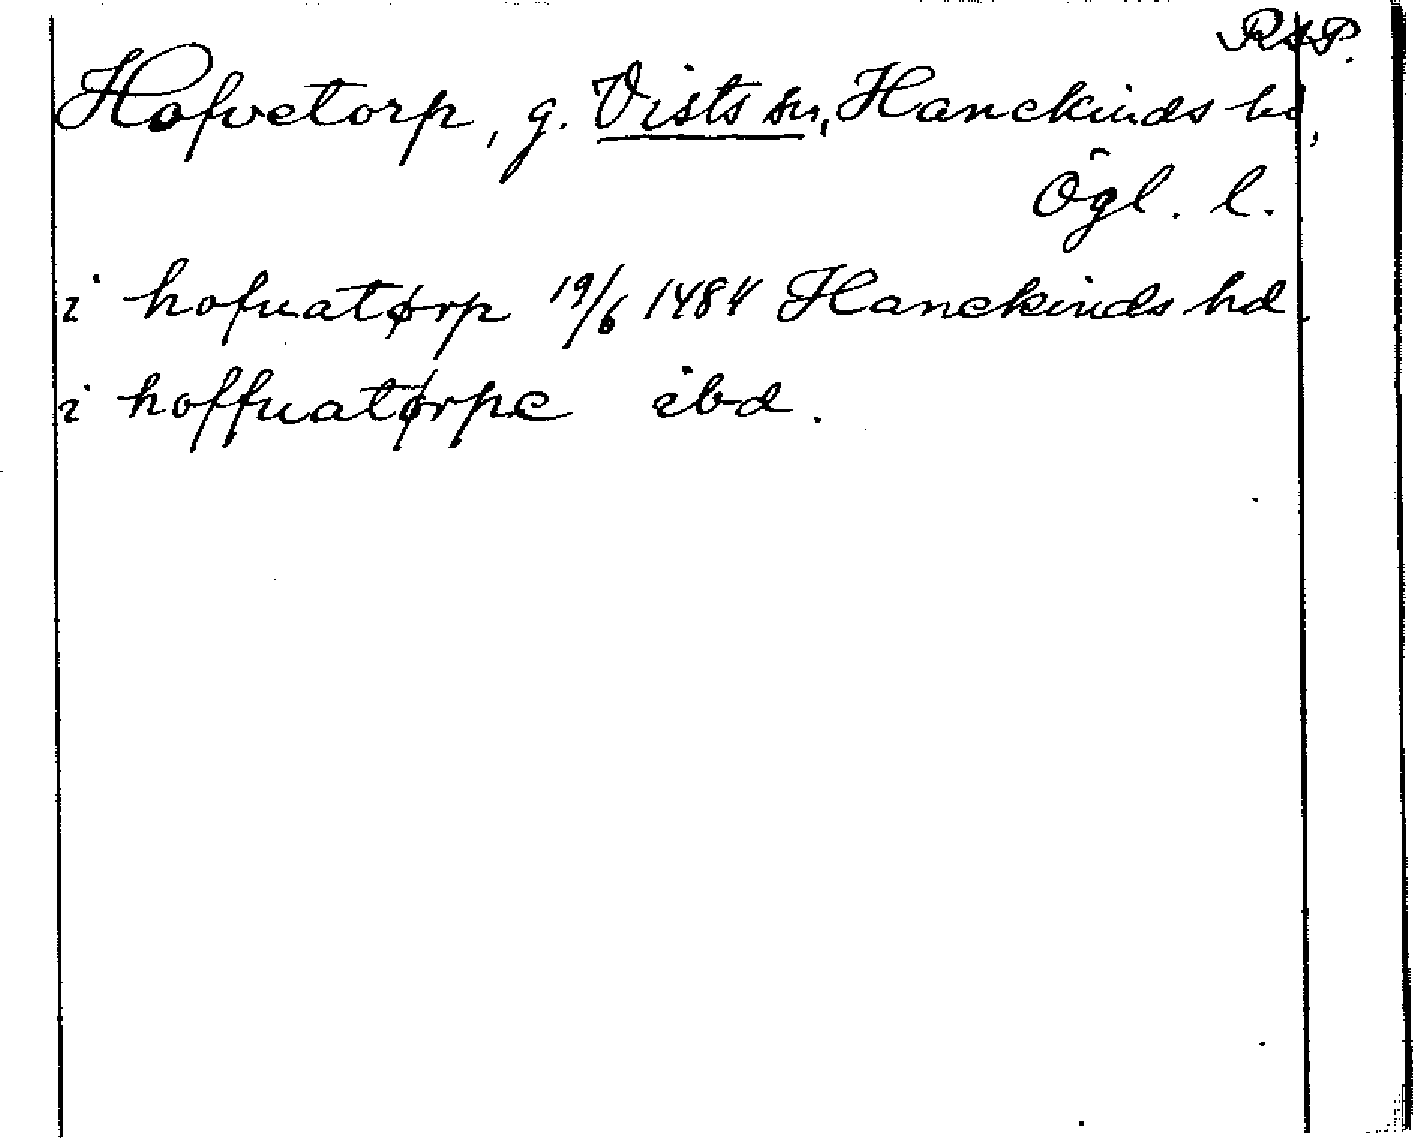 RAP.
Hofvetorp, g. Vists sn, Hanekinds hd,
Ögl. l.
i hofuatørp 19/6 1484 Hanekinds hd.
i hoffuatørpe ibd.